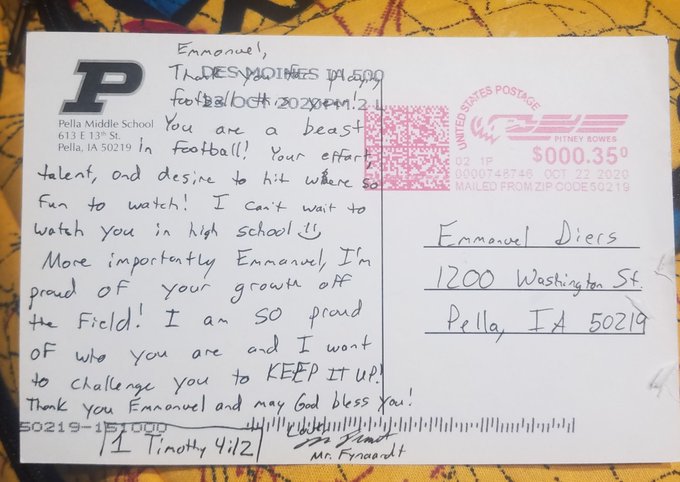 P
Pella Middle School
613 E 13th St.
Pella, IA 50219
DES MOINES IA 500
23 OCT 2020 PM 2 L
Emmanuel,
Thank you for playing
football this year.
You are a beast
in football! Your effort,
talent, and desire to hit where so
fun to watch! I can't wait to
watch you in high school
More importantly Emmanuel, I'm
proud of your growth off
the field! I am SO proud
of who you are and I want
to challenge you to KEEP IT UP!
Thank you Emmanuel and may God bless you!
50219-151000
1 Timothy 4:12
Mr. Fynaardt
UNITED STATES POSTAGE
PITNEY BOWES
02 1P $000.35⁰
0000748746 OCT 22 2020
MAILED FROM ZIP CODE 50219
Emmanuel Diers
1200 Washington St.
Pella, IA 50219